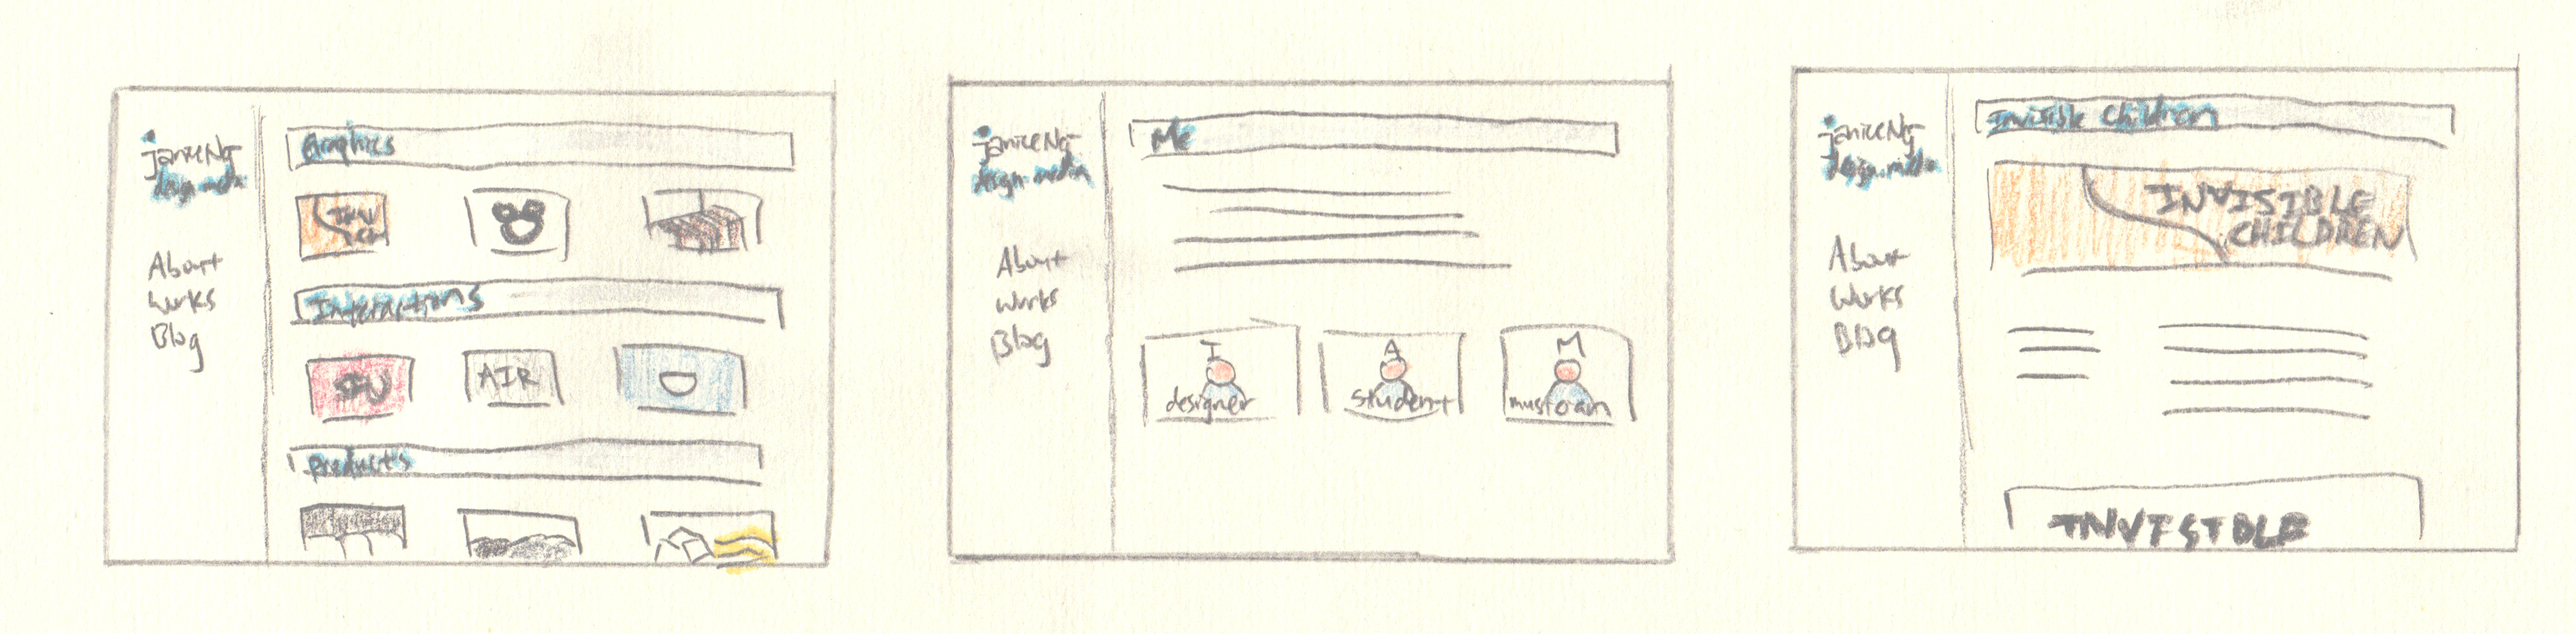 janiceNg
design.media
About
Works
Blog
Graphics
INV
CH
Interactions
AIR
products
janiceNg
design.media
About
Works
Blog
Me
I
designer
A
student
M
musician
janiceNg
design.media
About
Works
Blog
Invisible Children
INVISIBLE
CHILDREN
INVISIBLE